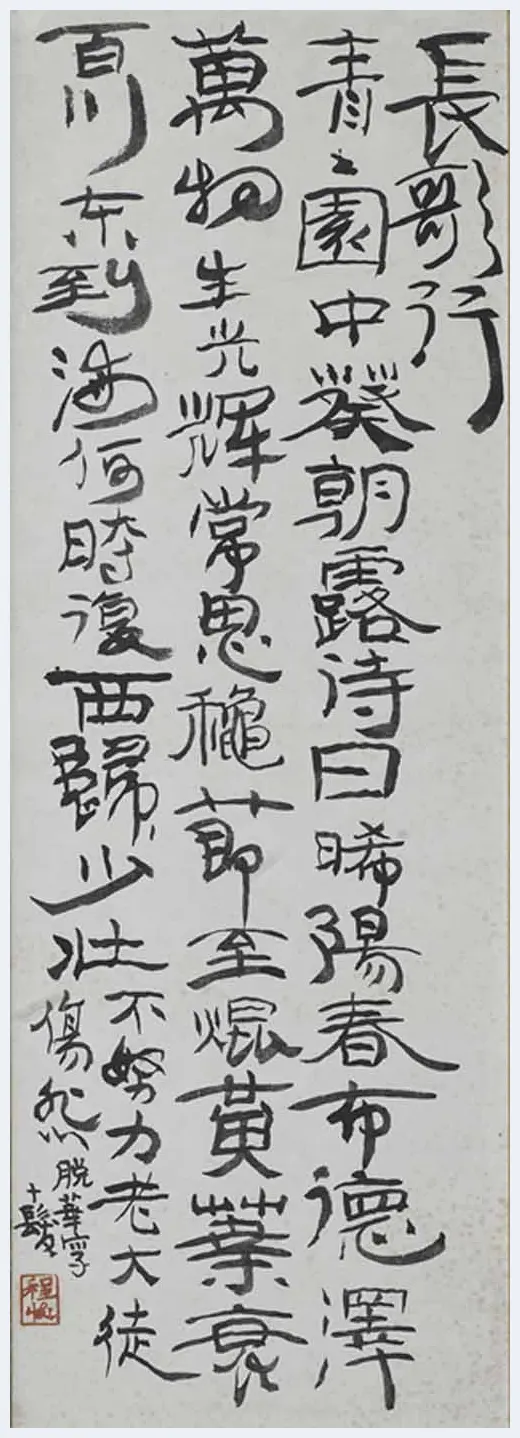 長歌行
青〻園中葵朝露待日晞陽春布德澤
萬物生光輝常思穐節至焜黃葉衰
百川东到海何時復西歸少壯
不努力老大徒
傷悲
脱華字
十髮